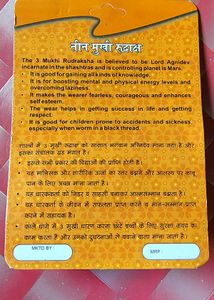 तीन मुखी रुद्राक्ष
The 3 Mukhi Rudraksha is believed to be Lord Agnidev
incarnate in the shashtras and is controlling planet is Mars.
• It is good for gaining all kinds of knowledge.
• It is for boosting mental and physical energy levels and
overcoming laziness.
• It makes the wearer fearless, courageous and enhances
self esteem.
• The wear helps in getting success in life and getting
respect.
• It is good for children prone to accidents and sickness,
especially when worn in a black thread.
शास्त्रों में 3 मुखी रुद्राक्ष को साक्षात् भगवान अग्निदेव माना गया है और
इसका संचालक ग्रह मंगल है
• इससे सभी प्रकार की विद्याओं की प्राप्ति होती है।
• यह मानसिक और शारीरिक ऊर्जा का स्तर बढ़ाने और आलस्य पर काबू
पाने के लिए अच्छा माना जाता है।
• यह धारणकर्ता को निडर व साहसी बनाकर आत्मसम्मान बढ़ाता है।
• यह धारणकर्ता के जीवन में सफलता प्राप्त करने व मान-सम्मान प्राप्त
करने में सहायक है।
• काले धागे में 3 मुखी धारण करना छोटे बच्चों के लिए सुरक्षा कवच का
काम करता है और उनको दुर्घटनाओं से बचाने वाला माना जाता है।
MKTD BY :
MRP :